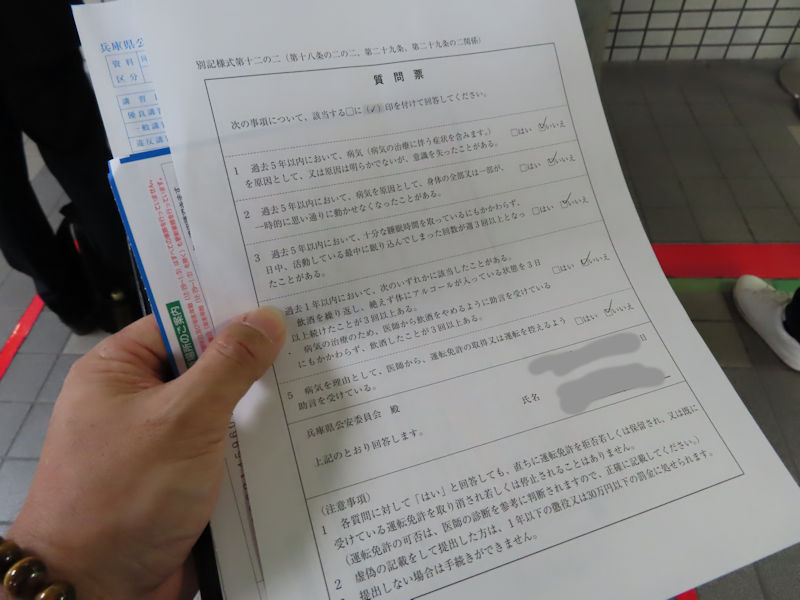 別記様式第十二の二（第十八条の二の二、第二十九条、第二十九条の二関係）
質問票
次の事項について、該当する□に（✓）印を付けて回答してください。
1 過去5年以内において、病気（病気の治療に伴う症状を含みます。）
を原因として、又は原因は明らかでないが、意識を失ったことがある。
□はい ☑いいえ
2 過去5年以内において、病気を原因として、身体の全部又は一部が、
一時的に思い通りに動かせなくなったことがある。
□はい ☑いいえ
3 過去5年以内において、十分な睡眠時間を取っているにもかかわらず、
日中、活動している最中に眠り込んでしまった回数が週3回以上となっ
たことがある。
□はい ☑いいえ
過去1年以内において、次のいずれかに該当したことがある。
飲酒を繰り返し、絶えず体にアルコールが入っている状態を3日
以上続けたことが3回以上ある。
・ 病気の治療のため、医師から飲酒をやめるように助言を受けている
にもかかわらず、飲酒したことが3回以上ある。
□はい ☑いいえ
5 病気を理由として、医師から、運転免許の取得又は運転を控えるよう
助言を受けている。
□はい ☑いいえ
日
兵庫県公安委員会 殿
氏名
上記のとおり回答します。
（注意事項）
1 各質問に対して「はい」と回答しても、直ちに運転免許を拒否若しくは保留され、又は既に
受けている運転免許を取り消され若しくは停止されることはありません。
（運転免許の可否は、医師の診断を参考に判断されますので、正確に記載してください。）
2 虚偽の記載をして提出した方は、1年以下の懲役又は30万円以下の罰金に処せられます。
3 提出しない場合は手続きができません。
兵庫県公
資料
区分
講習
優良講
一般講
違反講
場所のご案内